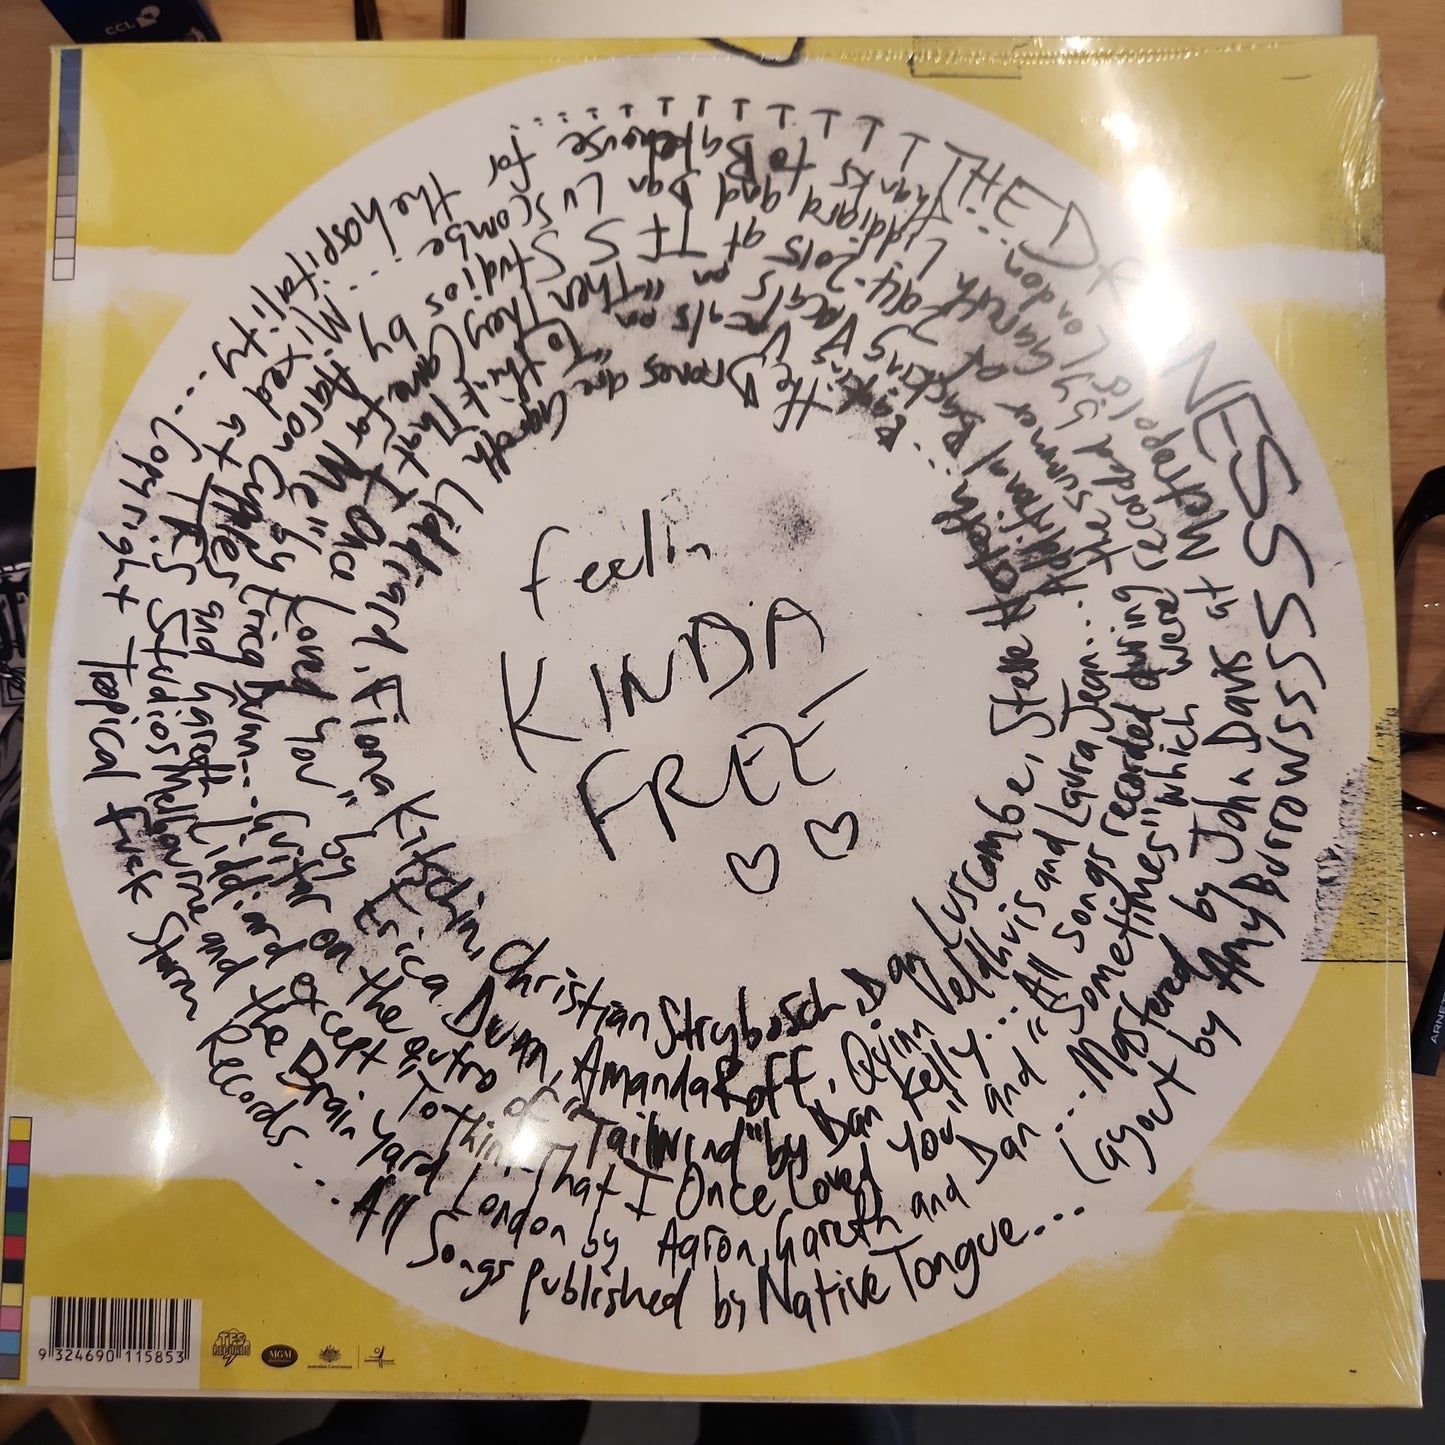 feelin
KINDA
FREE
The Drones are Gareth Liddiard, Fiona Kitschin, Christian Strybosch, Dan Luscombe, Steve Hesketh...
Backing Vocals on "Then They Came For Me" by Erica Dunn...
Backing Vocals on "To Think That I Once Loved You" by Erica Dunn, Amanda Roff, Quinn Veldhuis and Laura Jean...
Additional
Guitar on the outro of "Tailwind" by Dan Kelly...
All songs recorded during the summer of
at TFS Studios by Aaron Cupples and Gareth Liddiard except "To Think That I Once Loved You" and "Sometimes" which were recorded by Gareth Liddiard and Dan Luscombe...
Mixed at TFS Studios Melbourne and the Brain Yard London by Aaron, Gareth and Dan... Mastered by John Davis at Metropolis London...
Thanks to Bakehouse for the hospitality...
Copyright Tropical Fuck Storm Records...
All Songs published by Native Tongue...
Layout by Amy Burrowssss
9 324690 115853
TFS
RECORDS
MGM
Australian Government
CCL
ARNET